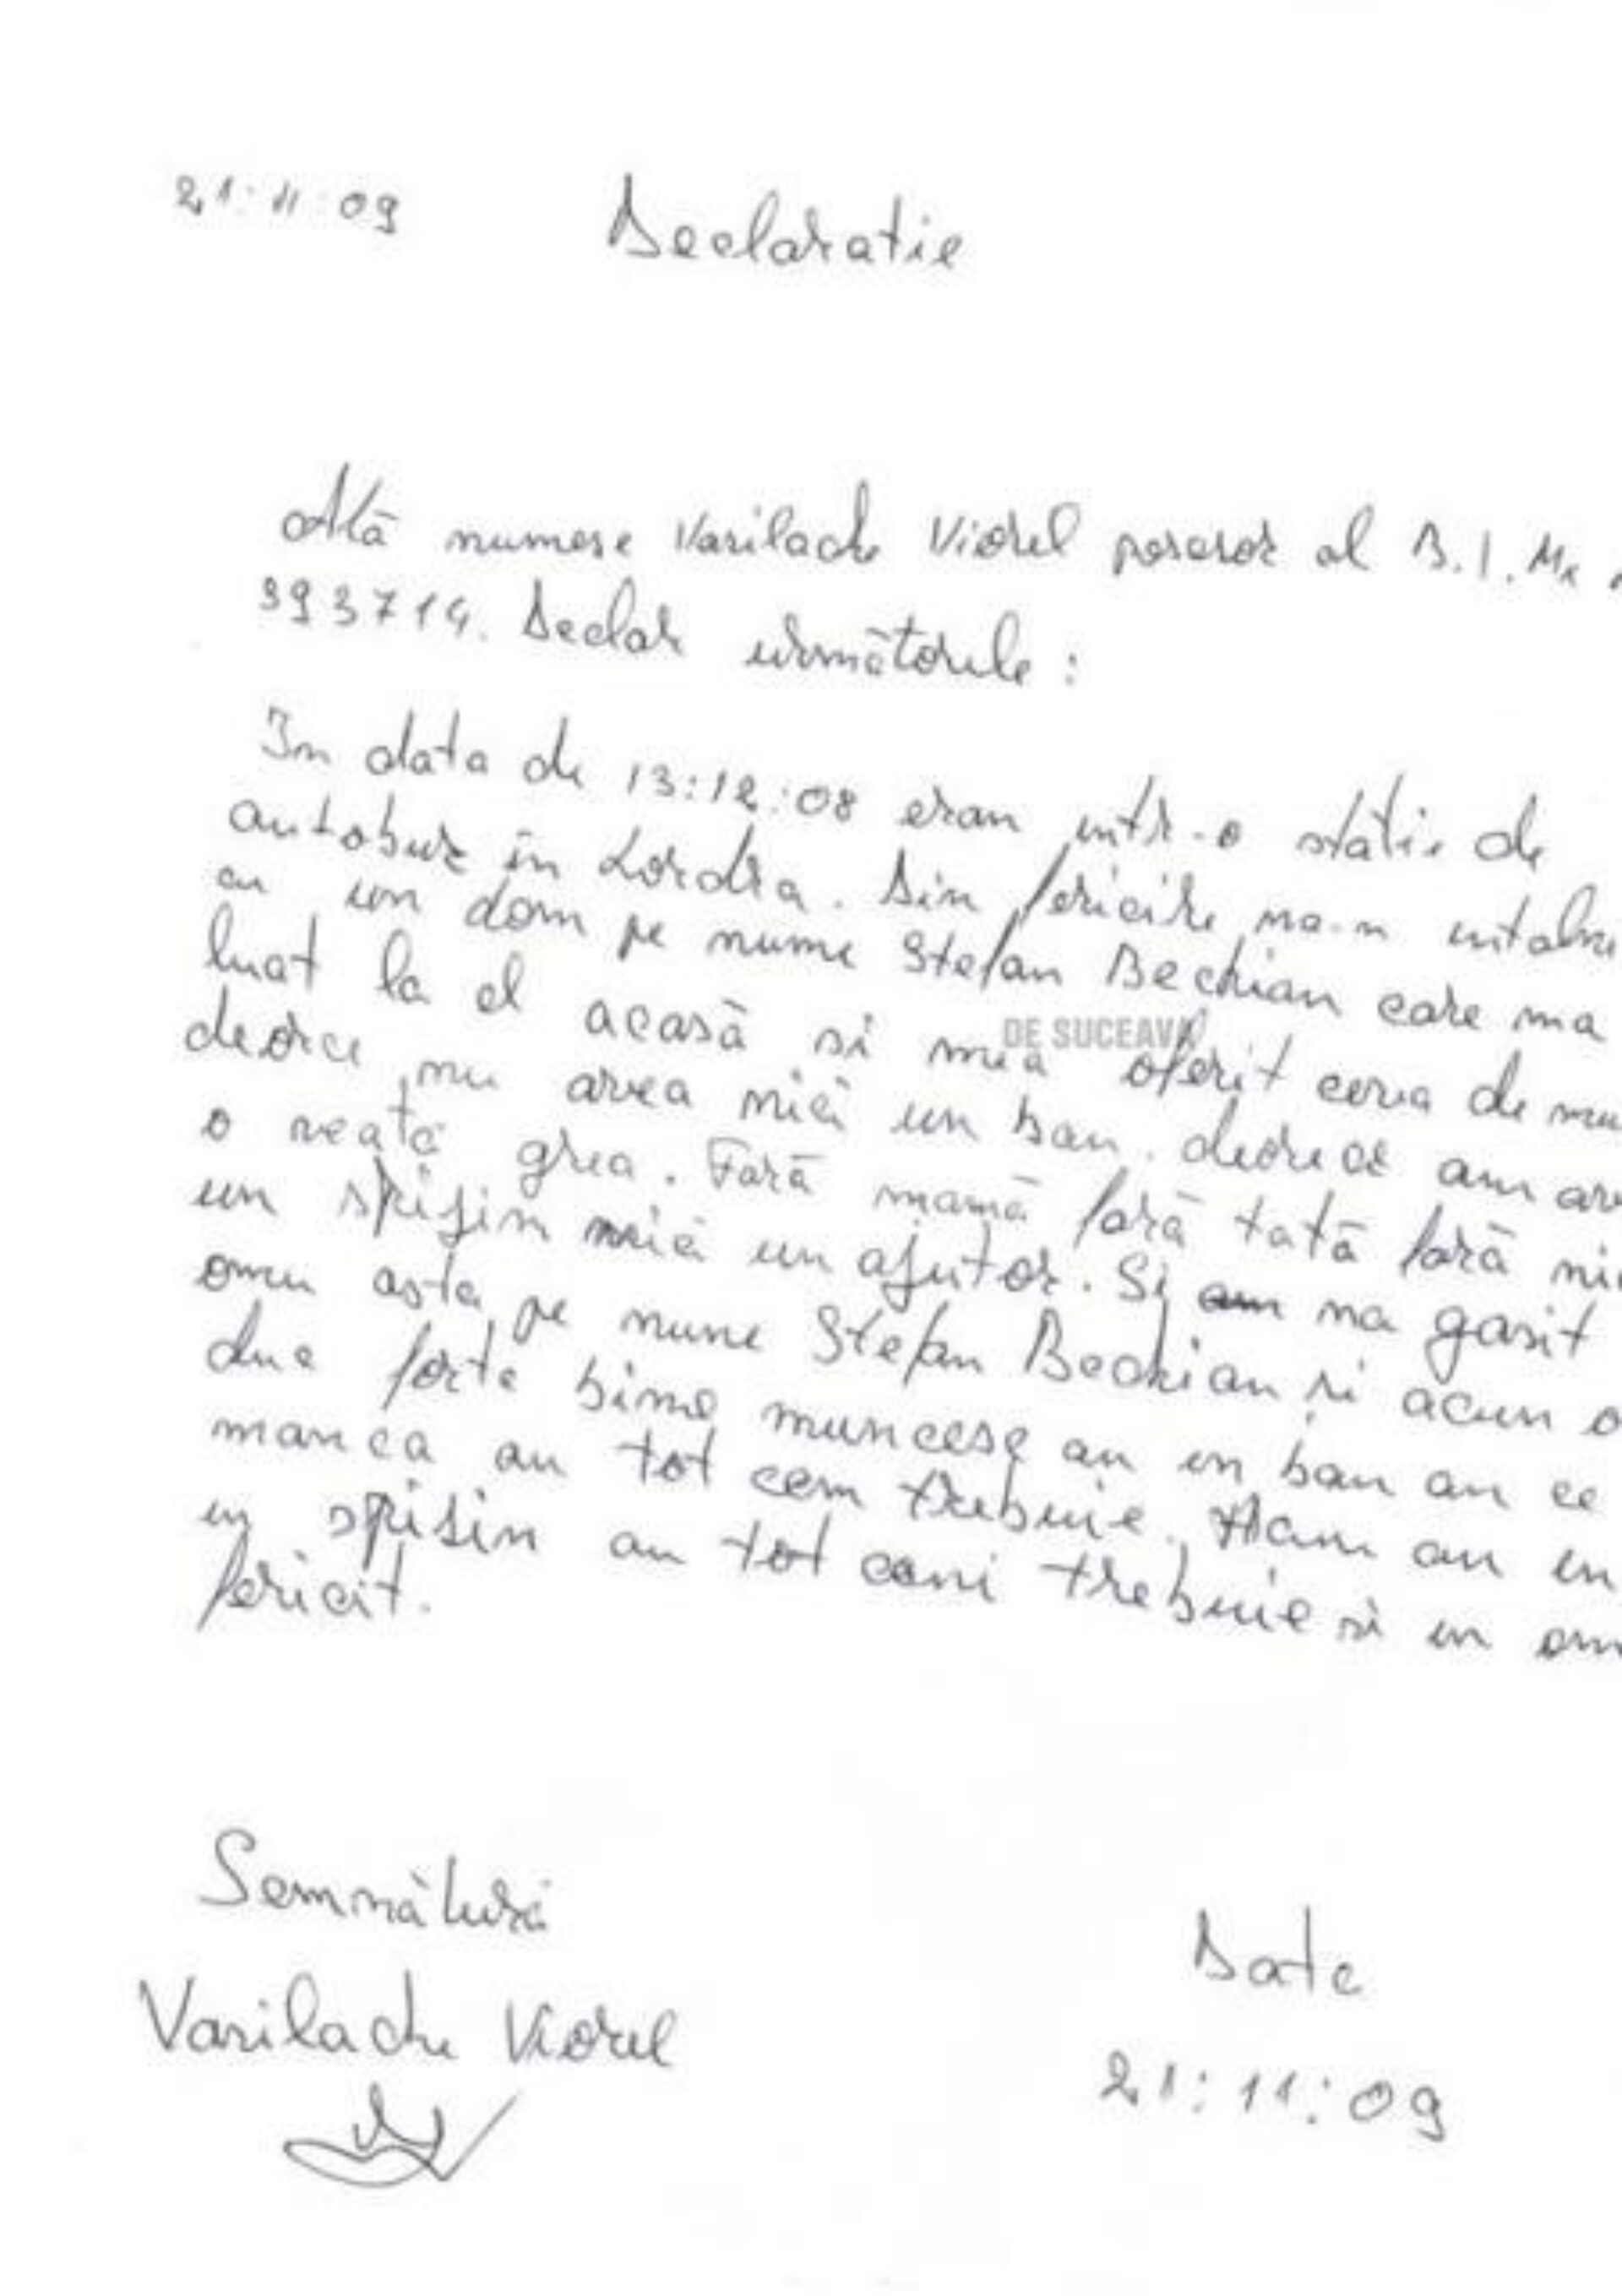 21:11:09
Declaratie
Mă numesc Vasilache Viorel posesor al B.I. Nr
393714. Declar următorule:
In data de 13:12:08 eram intr-o statie de
autobuz in Londra. Din fericire ma-m intalni
cu un dom pe nume Stefan Bechian care ma
luat la el acasă si mia oferit ceva de mu
DE SUCEAVA
deorce nu avea nici un ban. deorece am av
o veata grea. Fară mamă fară tată fară ni
un sprijin nici un ajutor. Si am ma gasit
omu asta pe nume Stefan Bechian si acum o
duc forte bine muncesc am un ban am ce
manca am tot cem trebuie. Acum am un
un sprijin am tot ceni trebuie si un om
fericit.
Semnătură
Vasilache Viorel
Date
21:11:09